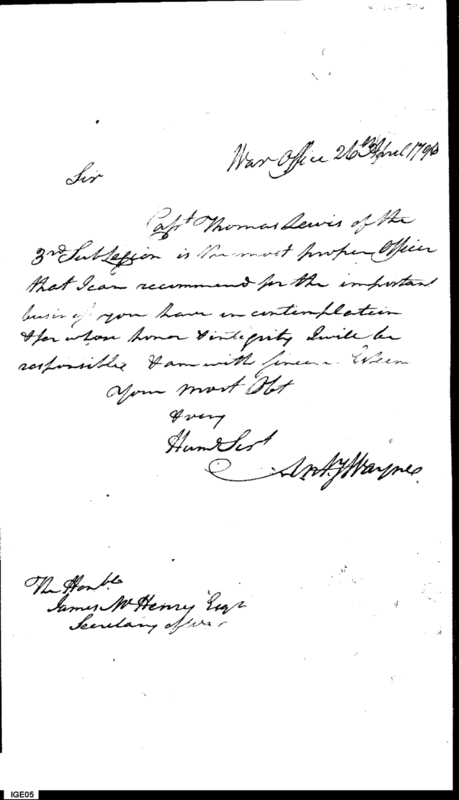 War Office 26th April 1796
Sir
Capt Thomas Lewis of the
3rd Sub Legion is the most proper Officer
that I can recommend for the important
business you have in contemplation
& for whose honor & integrity I will be
responsible & am with sincere Esteem
Your most Obt
& very
Hum Sert
Anty Wayne
The Honble
James McHenry Esqr
Secretary of War
IGE05